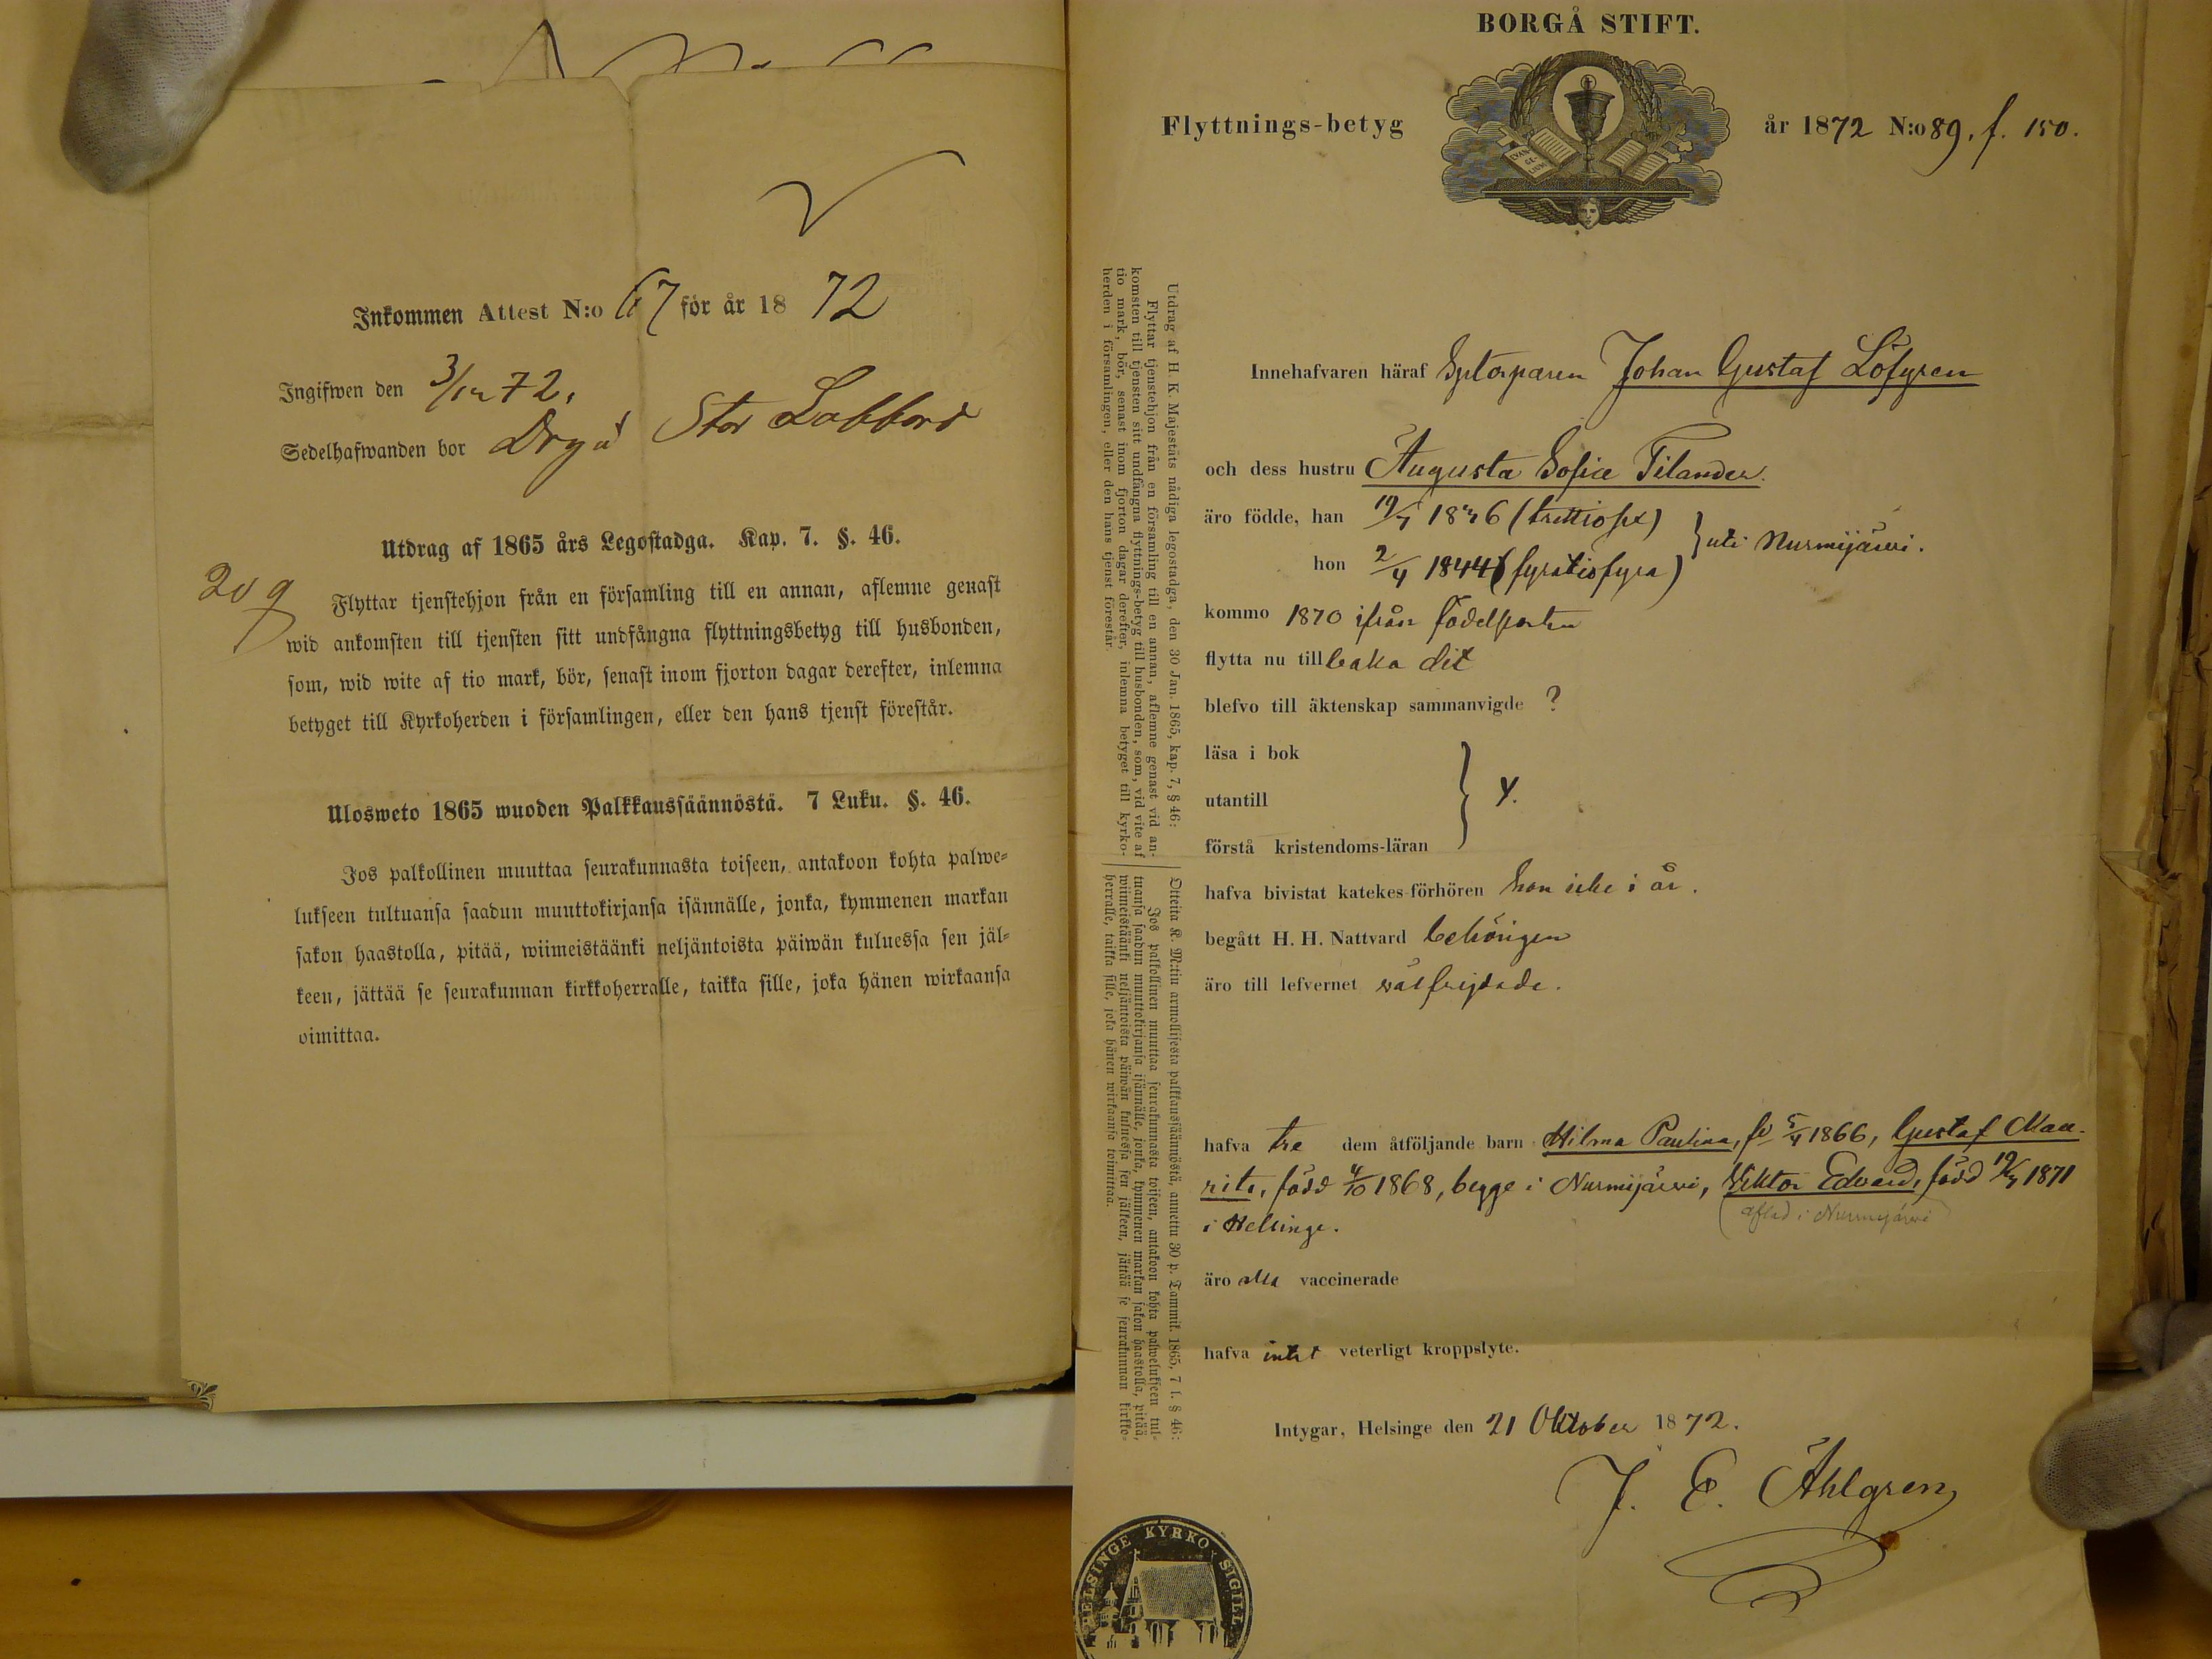 Inkommen Attest N:o 67 för år 1872
Ingifwen den 3/12 72.
Sedelhafwanden bor Stor Labbord
Utdrag af 1865 års Legostadga. Kap. 7. §. 46.
209
Flyttar tjenstehjon från en församling till en annan, aflemne genast
wid ankomsten till tjensten sitt undfångna flyttningsbetyg till husbonden,
som, wid wite af tio mark, bör, senast inom fjorton dagar derefter, inlemna
betyget till Kyrkoherden i församlingen, eller den hans tjenst förestår.
Ulosweto 1865 wuoden Palkkaussäännöstä. 7 Luku. §. 46.
Jos palkollinen muuttaa seurakunnasta toiseen, antakoon kohta palwe-
lukseen tultuansa saadun muuttokirjansa isännälle, jonka, kymmenen markan
sakon haastolla, pitää, wiimeistäänki neljäntoista päiwän kuluessa sen jäl-
keen, jättää se seurakunnan kirkkoherralle, taikka sille, joka hänen wirkaansa
oimittaa.
BORGÅ STIFT.
EVAN-
GE-
LIUM
Flyttnings-betyg år 1872 N:o 89, f. 150.
Utdrag af H. K. Majestäts nådiga legostadga, den 30 Jan. 1865, kap. 7, § 46:
Flyttar tjenstehjon från en församling till en annan, aflemne genast vid an-
komsten till tjensten sitt undfångna flyttnings-betyg till husbonden, som, vid vite af
tio mark, bör, senast inom fjorton dagar derefter, inlemna betyget till kyrko-
herden i församlingen, eller den hans tjenst förestår.
Otteita K. M:tin armollisesta palkkaussäännöstä, annettu 30 p. Tammik. 1865, 7 l. § 46:
Jos palkollinen muuttaa seurakunnasta toiseen, antakoon kohta palwelukseen tul-
tuansa saadun muuttokirjansa isännälle, jonka, kymmenen markan sakon haastolla, pitää,
wiimeistäänki neljäntoista päiwän kuluessa sen jälkeen, jättää se seurakunnan kirkko-
herralle, taikka sille, joka hänen wirkaansa toimittaa.
Innehafvaren häraf Johan Gustaf Löfgren
och dess hustru Augusta Sofia Tilander.
äro födde, han 1836 (trettiosex)
hon 2/4 1844 (fyratiofyra) } uti Nurmijärvi.
kommo 1870 ifrån födelseorten
flytta nu tillbaka dit
blefvo till äktenskap sammanvigde ?
läsa i bok
utantill
förstå kristendoms-läran
hafva bivistat katekes-förhören hon icke i år.
begått H. H. Nattvard behörigen
äro till lefvernet välfrejdade.
hafva tre dem åtföljande barn Hilma Paulina, fd 5/4 1866, Gustaf Mau-
rits, född 4/10 1868, begge i Nurmijärvi, Viktor Edvard, född 1871
(aflad i Nurmijärvi)
i Helsinge.
äro alla vaccinerade
hafva intet veterligt kroppslyte.
Intygar, Helsinge den 21 Oktober 1872.
J. E. Åhlgren
HELSINGE KYRKO SIGILL